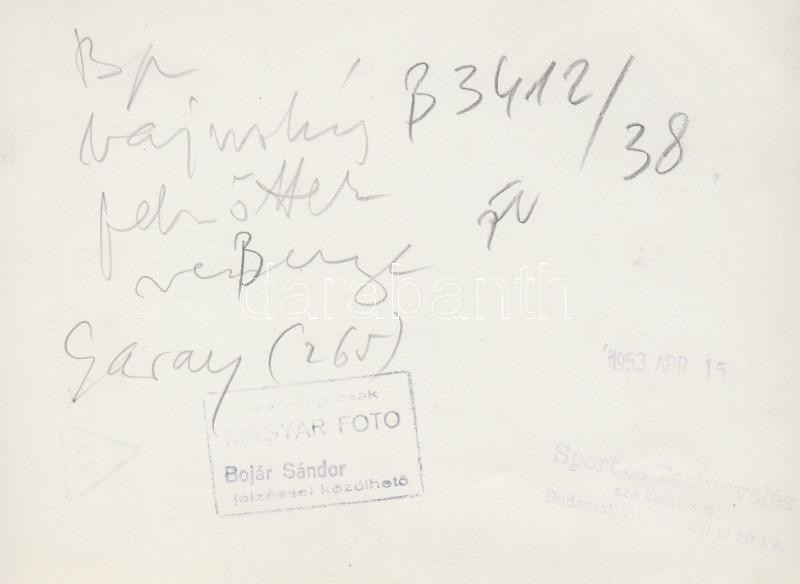 Bp
bajnokság
felnőttek
versenye
Garay (265)
B 3412/38
B
darabanth
1953 APR 15
Ezen kép csak
MAGYAR FOTO
Bojár Sándor
jelzéssel közölhető
Sport és Testnevelés
szerkesztősége
Budapest, VII., Rákóczi-út 50 I. e.